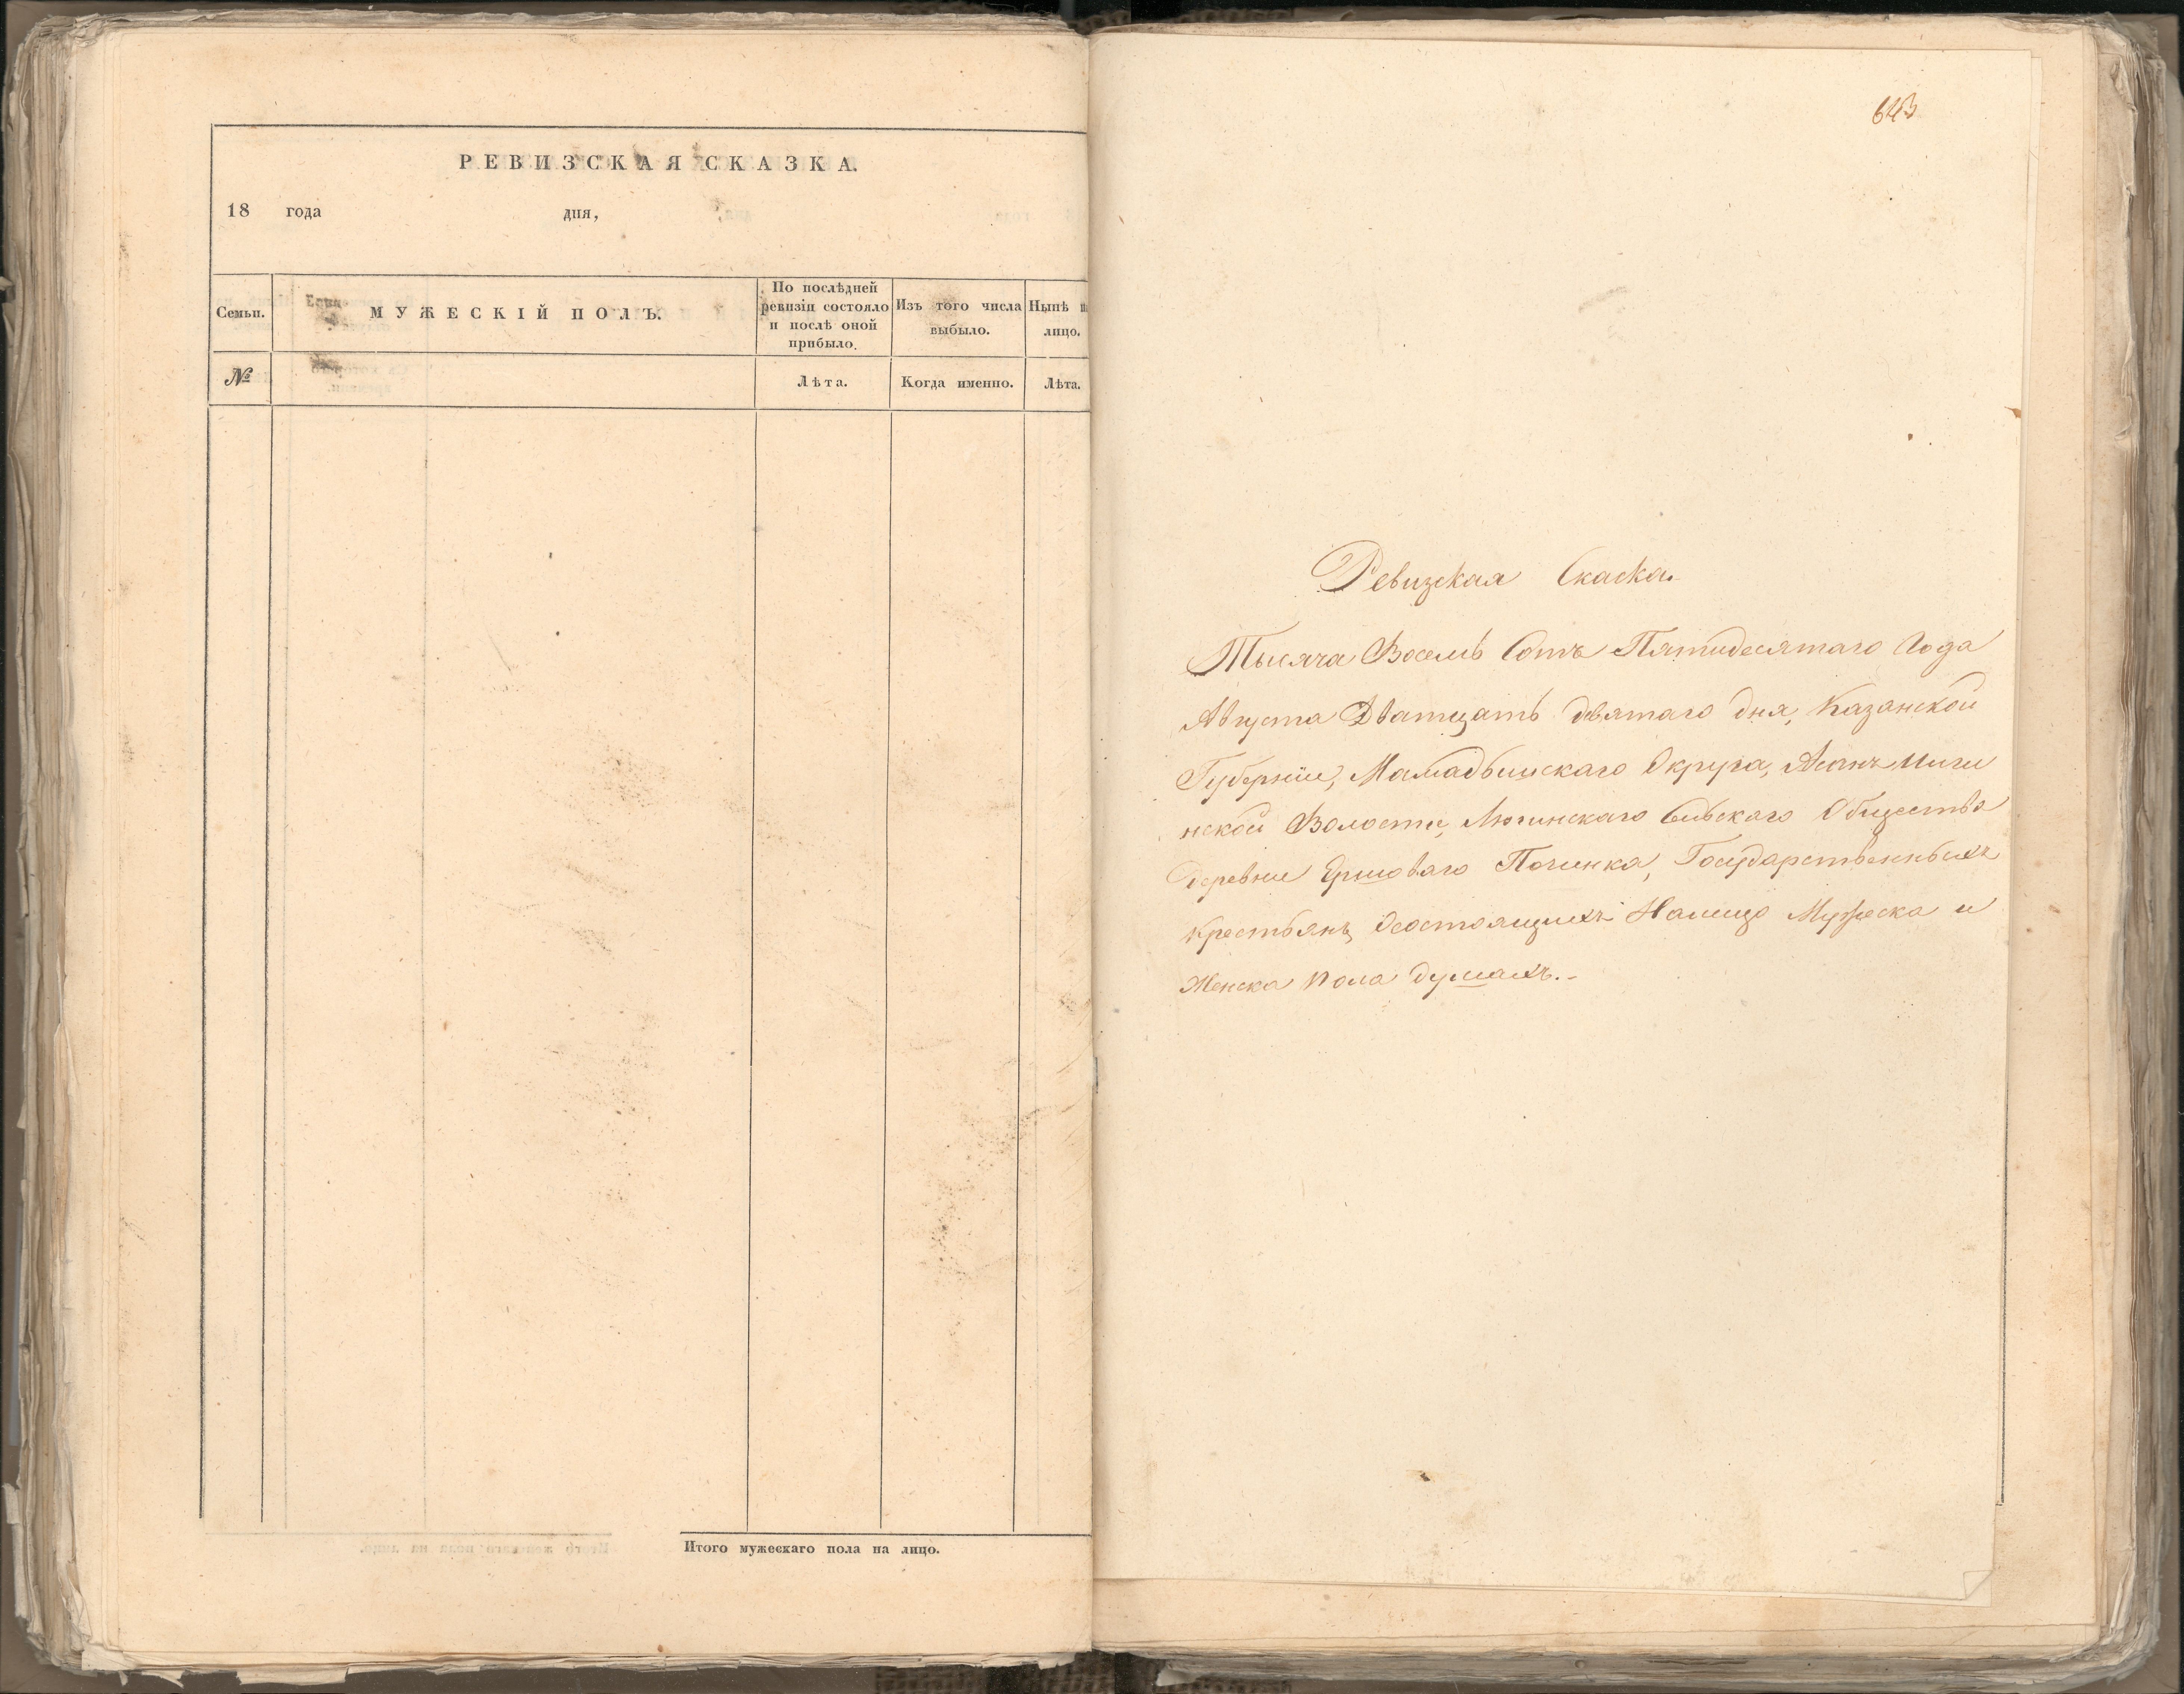 РЕВИЗСКАЯ СКАЗКА.
18 года дня,
Семьи.
МУЖЕСКІЙ ПОЛЪ.
По послѣдней
ревизіи состояло
и послѣ оной
прибыло.
Изъ того числа
выбыло.
Нынѣ н
лицо.
№
Лѣта.
Когда именно.
Лѣта.
Итого мужескаго пола на лицо.
643
Ревизская Скаска.
Тысяча Восемь Сотъ Пятидесятаго Года
Августа Дватцать девятаго дня, Казанской
Губерніи, Мамадышскаго Округа,
нской Волости, Люгинскаго Сельскаго Общества
Деревни Ершоваго Починка, Государственныхъ
Крестьянъ, Осостоящихъ Налицо Мужеска и
Женска пола душахъ.-